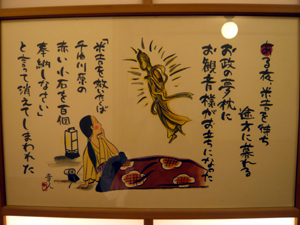 ある夜、米吉を待ち
途方に暮れる
お政の夢枕に
お観音様がお立ちになった
「米吉を救いたくば
平治川原の
赤い小石を百個
奉納しなさい」
と言って消えてしまわれた